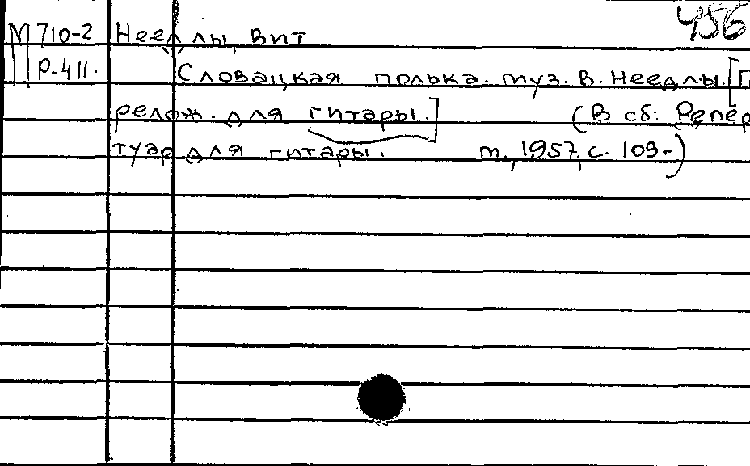 456
М 710-2 Неедлы, Вит
Р-411. Словацкая полька. муз. В. Неедлы. [П
релож. для гитары.] (В сб. Репер
туар для гитары. т., 1957, с. 109-)